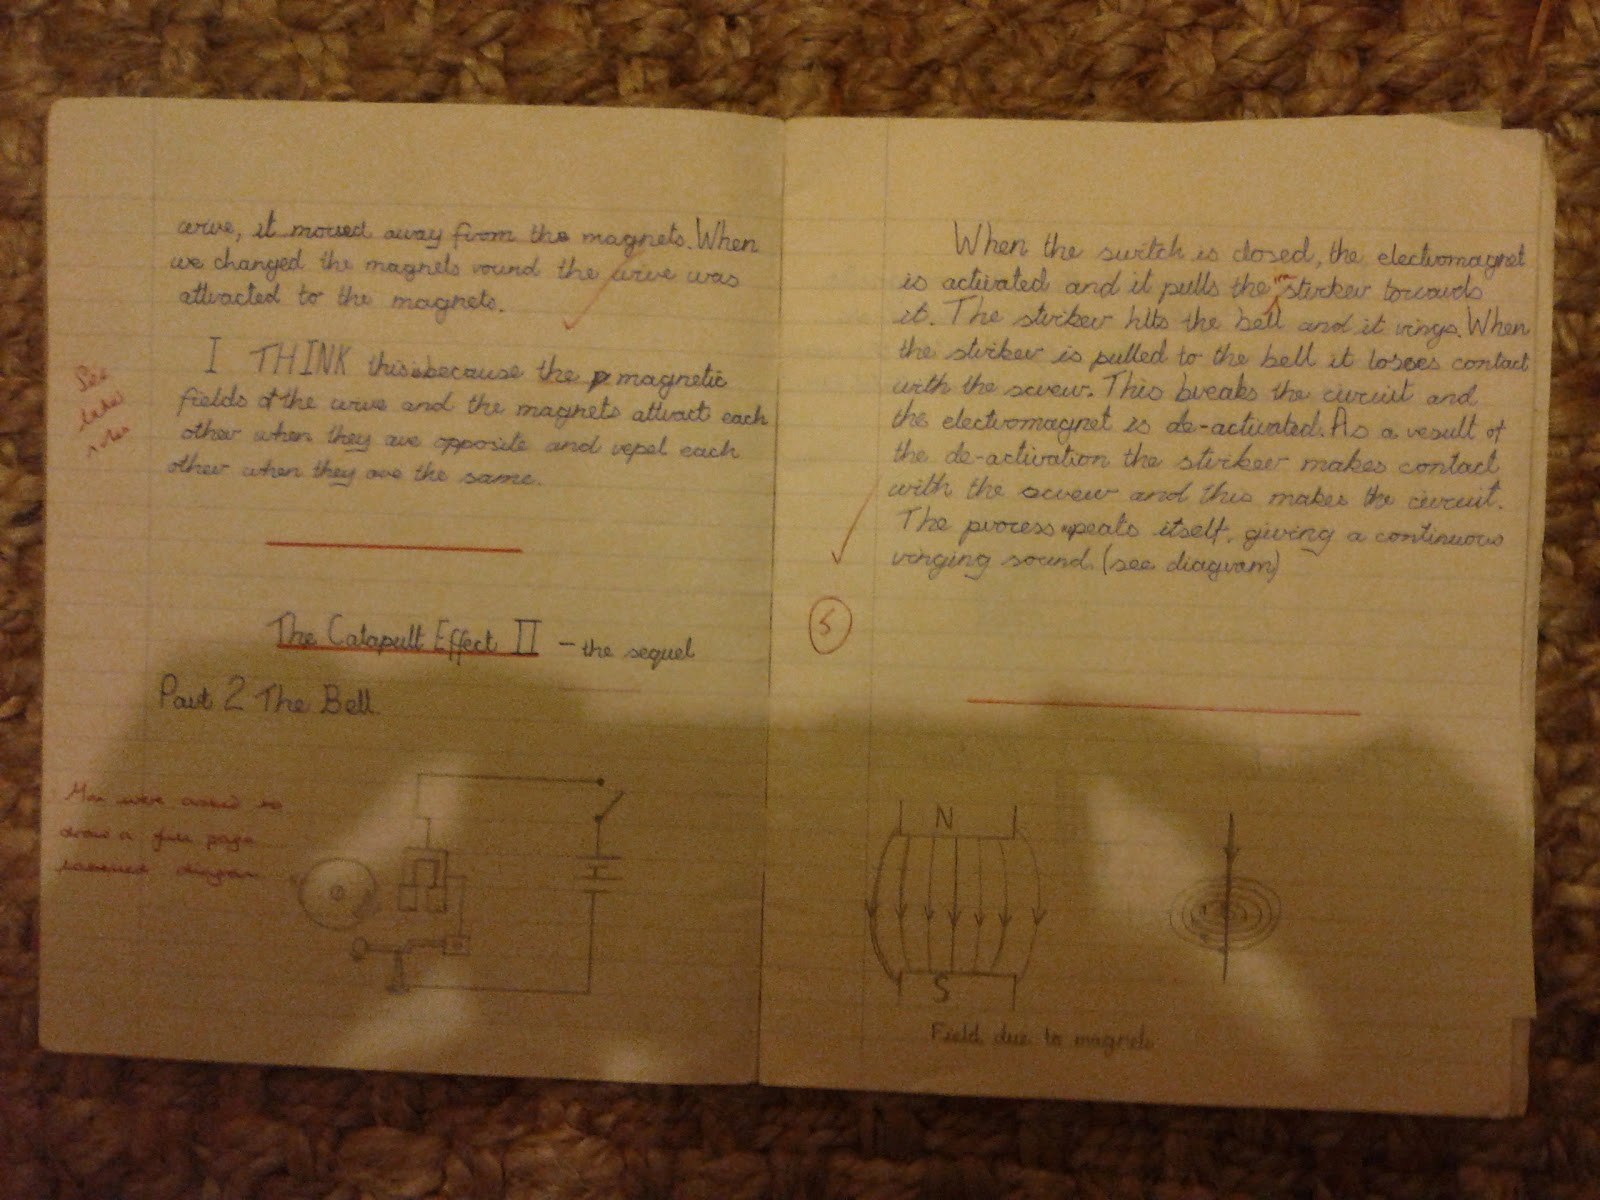 wire, it moved away from the magnets. When
we changed the magnets round the wire was
attracted to the magnets.
I THINK this is because the magnetic
fields of the wire and the magnets attract each
other when they are opposite and repel each
other when they are the same.
See
later
notes
The Catapult Effect II - the sequel
Part 2 The Bell
You were asked to
draw a full page
diagram
When the switch is closed, the electromagnet
is activated and it pulls the striker towards
it. The striker hits the bell and it rings. When
the striker is pulled to the bell it loses contact
with the screw. This breaks the circuit and
the electromagnet is de-activated. As a result of
the de-activation the striker makes contact
with the screw and this makes the circuit.
The process repeats itself, giving a continuous
ringing sound. (see diagram)
5
N
S
Field due to magnets